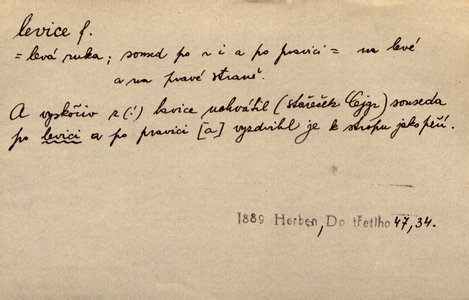 levice f.
= levá ruka; soused po l i a po pravici = na levé
a na pravé straně.
A vyskočiv z (!) lavice uchvátil (stařeček Cyjz) souseda
po levici a po pravici [a] vyzdvihl je k stropu jako peří.
1889 Herben, Do třetího 47, 34.